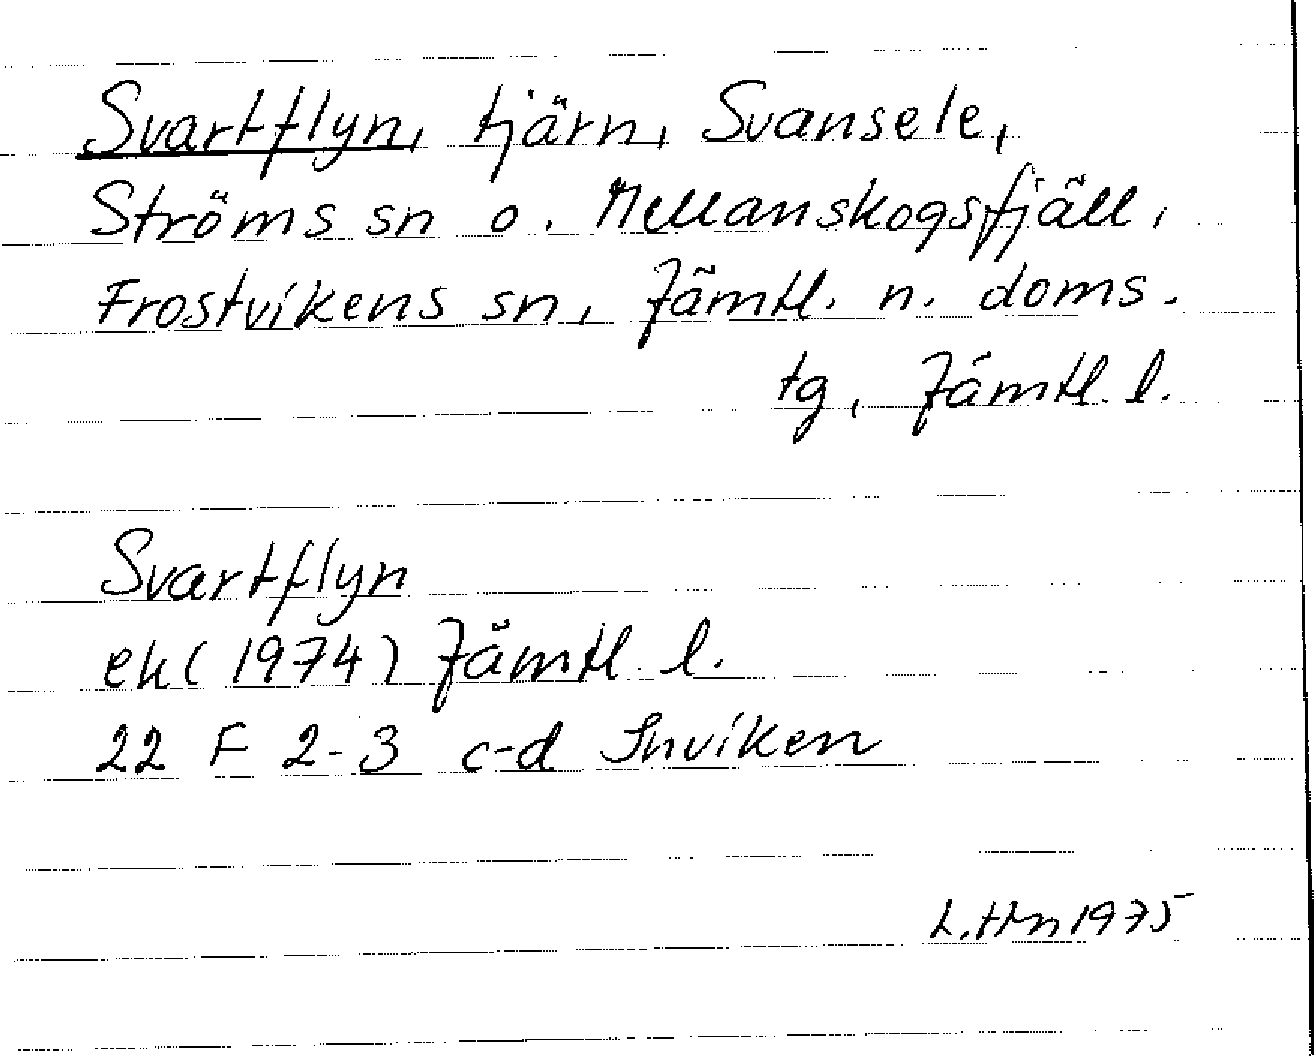 Svartflyn, tjärn, Svansele,
Ströms sn o. Mellanskogsfjäll,
Frostvikens sn, Jämtl. n. doms.
tg, Jämtl. l.
Svartflyn
ek (1974) Jämtl. l.
22 F 2-3 c-d Inviken
L. Hn 1975